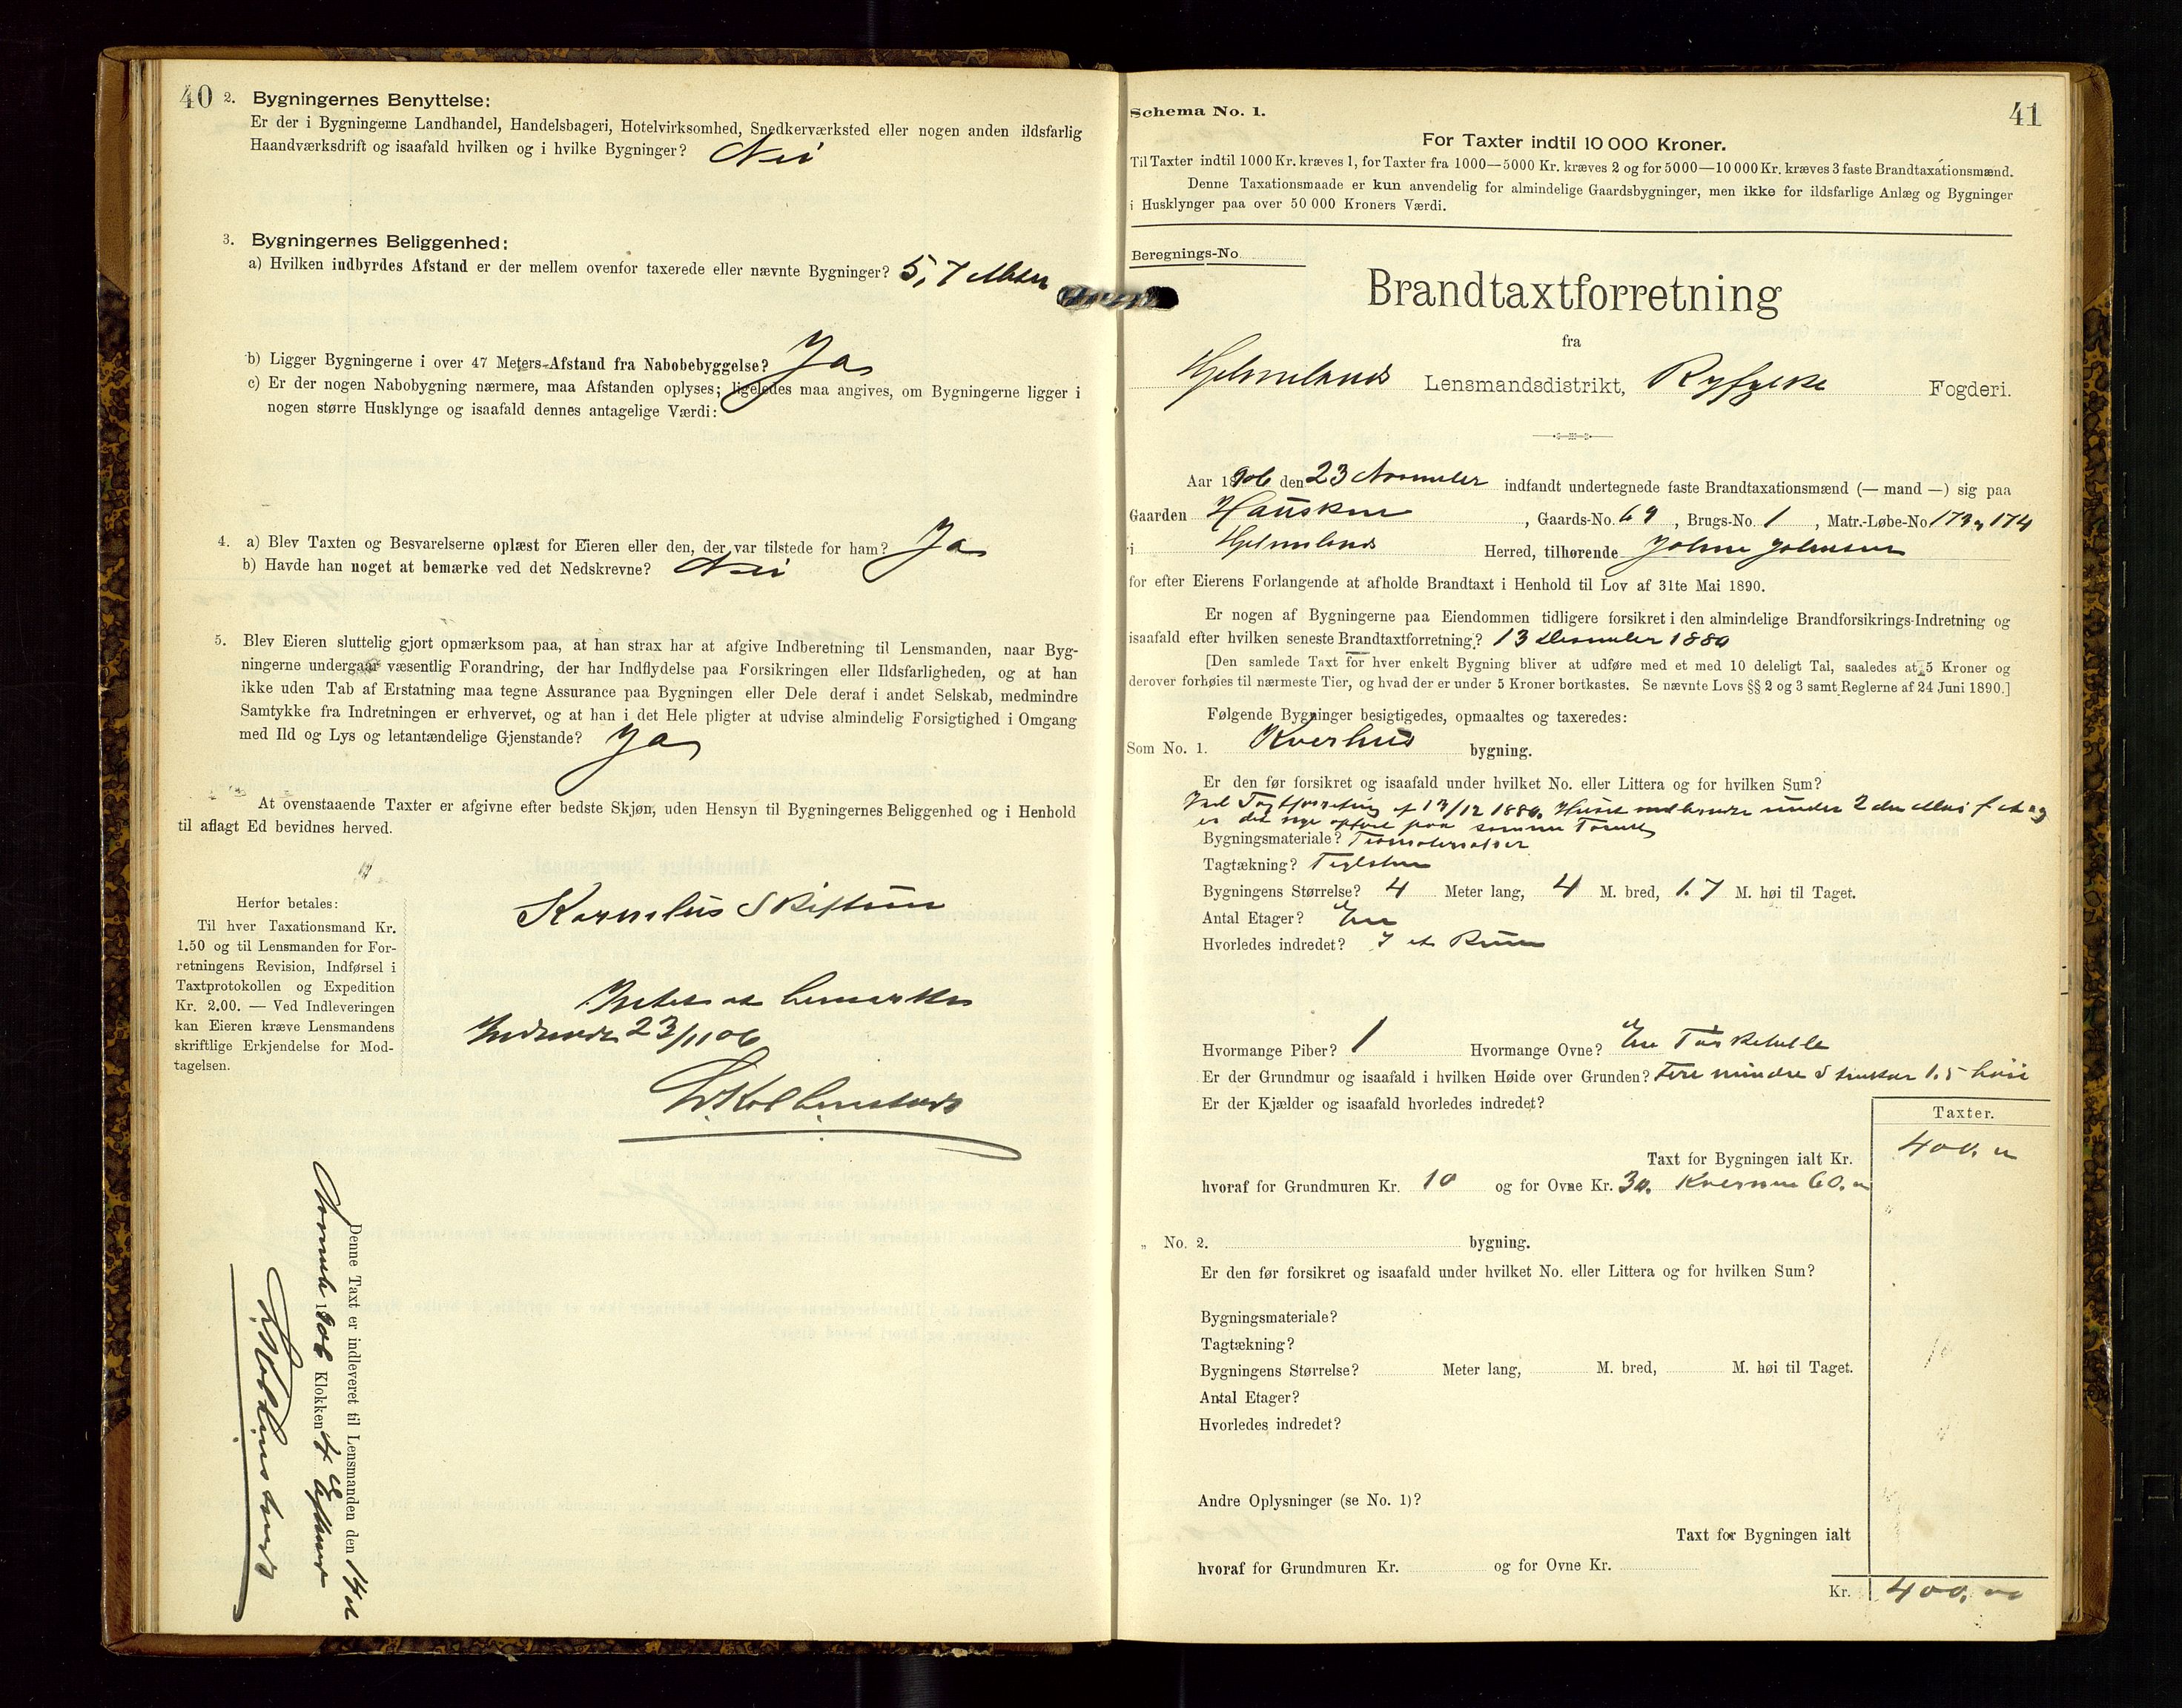 40
2. Bygningernes Benyttelse:
Er der i Bygningerne Landhandel, Handelsbageri, Hotelvirksomhed, Snedkerværksted eller nogen anden ildsfarlig
Haandværksdrift og isaafald hvilken og i hvilke Bygninger? Nei
3. Bygningernes Beliggenhed:
a) Hvilken indbyrdes Afstand er der mellem ovenfor taxerede eller nævnte Bygninger? 5,7 Meter
b) Ligger Bygningerne i over 47 Meters Afstand fra Nabobebyggelse? Ja
c) Er der nogen Nabobygning nærmere, maa Afstanden oplyses; ligeledes maa angives, om Bygningerne ligger i
nogen større Husklynge og isaafald dennes antagelige Værdi:
4. a) Blev Taxten og Besvarelserne oplæst for Eieren eller den, der var tilstede for ham? Ja
b) Havde han noget at bemærke ved det Nedskrevne? Nei
5. Blev Eieren sluttelig gjort opmærksom paa, at han strax har at afgive Indberetning til Lensmanden, naar Byg-
ningerne undergaar væsentlig Forandring, der har Indflydelse paa Forsikringen eller Ildsfarligheden, og at han
ikke uden Tab af Erstatning maa tegne Assurance paa Bygningen eller Dele deraf i andet Selskab, medmindre
Samtykke fra Indretningen er erhvervet, og at han i det Hele pligter at udvise almindelig Forsigtighed i Omgang
med Ild og Lys og letantændelige Gjenstande? Ja
At ovenstaaende Taxter er afgivne efter bedste Skjøn, uden Hensyn til Bygningernes Beliggenhed og i Henhold
til aflagt Ed bevidnes herved.
Kornelius Skiftun
Herfor betales:
Til hver Taxationsmand Kr.
1.50 og til Lensmanden for For-
retningens Revision, Indførsel i
Taxtprotokollen og Expedition
Kr. 2.00. — Ved Indleveringen
kan Eieren kræve Lensmandens
skriftlige Erkjendelse for Mod-
tagelsen.
Intet at bemerke
23/11 06
Denne Taxt er indleveret til Lensmanden den 14de
November 1906 Klokken 4 Efterm
41
Schema No. 1.
For Taxter indtil 10 000 Kroner.
Til Taxter indtil 1000 Kr. kræves 1, for Taxter fra 1000—5000 Kr. kræves 2 og for 5000—10 000 Kr. kræves 3 faste Brandtaxationsmænd.
Denne Taxationsmaade er kun anvendelig for almindelige Gaardsbygninger, men ikke for ildsfarlige Anlæg og Bygninger
i Husklynger paa over 50 000 Kroners Værdi.
Beregnings-No.
Brandtaxtforretning
fra
Hjelmelands Lensmandsdistrikt, Ryfylke Fogderi.
Aar 1906 den 23 November indfandt undertegnede faste Brandtaxationsmænd (— mand —) sig paa
Gaarden Hausken, Gaards-No. 69, Brugs-No. 1, Matr.-Løbe-No 173 & 174
i Hjelmelands Herred, tilhørende Johne Johnsen
for efter Eierens Forlangende at afholde Brandtaxt i Henhold til Lov af 31te Mai 1890.
Er nogen af Bygningerne paa Eiendommen tidligere forsikret i den almindelige Brandforsikrings-Indretning og
isaafald efter hvilken seneste Brandtaxtforretning? 13 Desember 1880
[Den samlede Taxt for hver enkelt Bygning bliver at udføre med et med 10 deleligt Tal, saaledes at 5 Kroner og
derover forhøies til nærmeste Tier, og hvad der er under 5 Kroner bortkastes. Se nævnte Lovs §§ 2 og 3 samt Reglerne af 24 Juni 1890.]
Følgende Bygninger besigtigedes, opmaaltes og taxeredes:
Som No. 1. Kverhus bygning.
Er den før forsikret og isaafald under hvilket No. eller Littera og for hvilken Sum?
af 13/12 1880. Huset nedbrændte under 2den Mai
er det nye opført paa samme Tomt
Bygningsmateriale? Træmaterialier
Tagtækning? Teglsten
Bygningens Størrelse? 4 Meter lang, 4 M. bred, 1.7 M. høi til Taget.
Antal Etager? En
Hvorledes indredet? I et Rum
Hvormange Piber? 1 Hvormange Ovne? En Tørkehelle
Er der Grundmur og isaafald i hvilken Høide over Grunden? Fire mindre 1.5 høie
Er der Kjælder og isaafald hvorledes indredet?
Taxter.
Taxt for Bygningen ialt Kr. 400.
hvoraf for Grundmuren Kr. 10 og for Ovne Kr. 30. Kvernen 60.
„ No. 2. bygning.
Er den før forsikret og isaafald under hvilket No. eller Littera og for hvilken Sum?
Bygningsmateriale?
Tagtækning?
Bygningens Størrelse? Meter lang, M. bred, M. høi til Taget.
Antal Etager?
Hvorledes indredet?
Andre Oplysninger (se No. 1)?
Taxt for Bygningen ialt
hvoraf for Grundmuren Kr. og for Ovne Kr.
Kr. 400.00